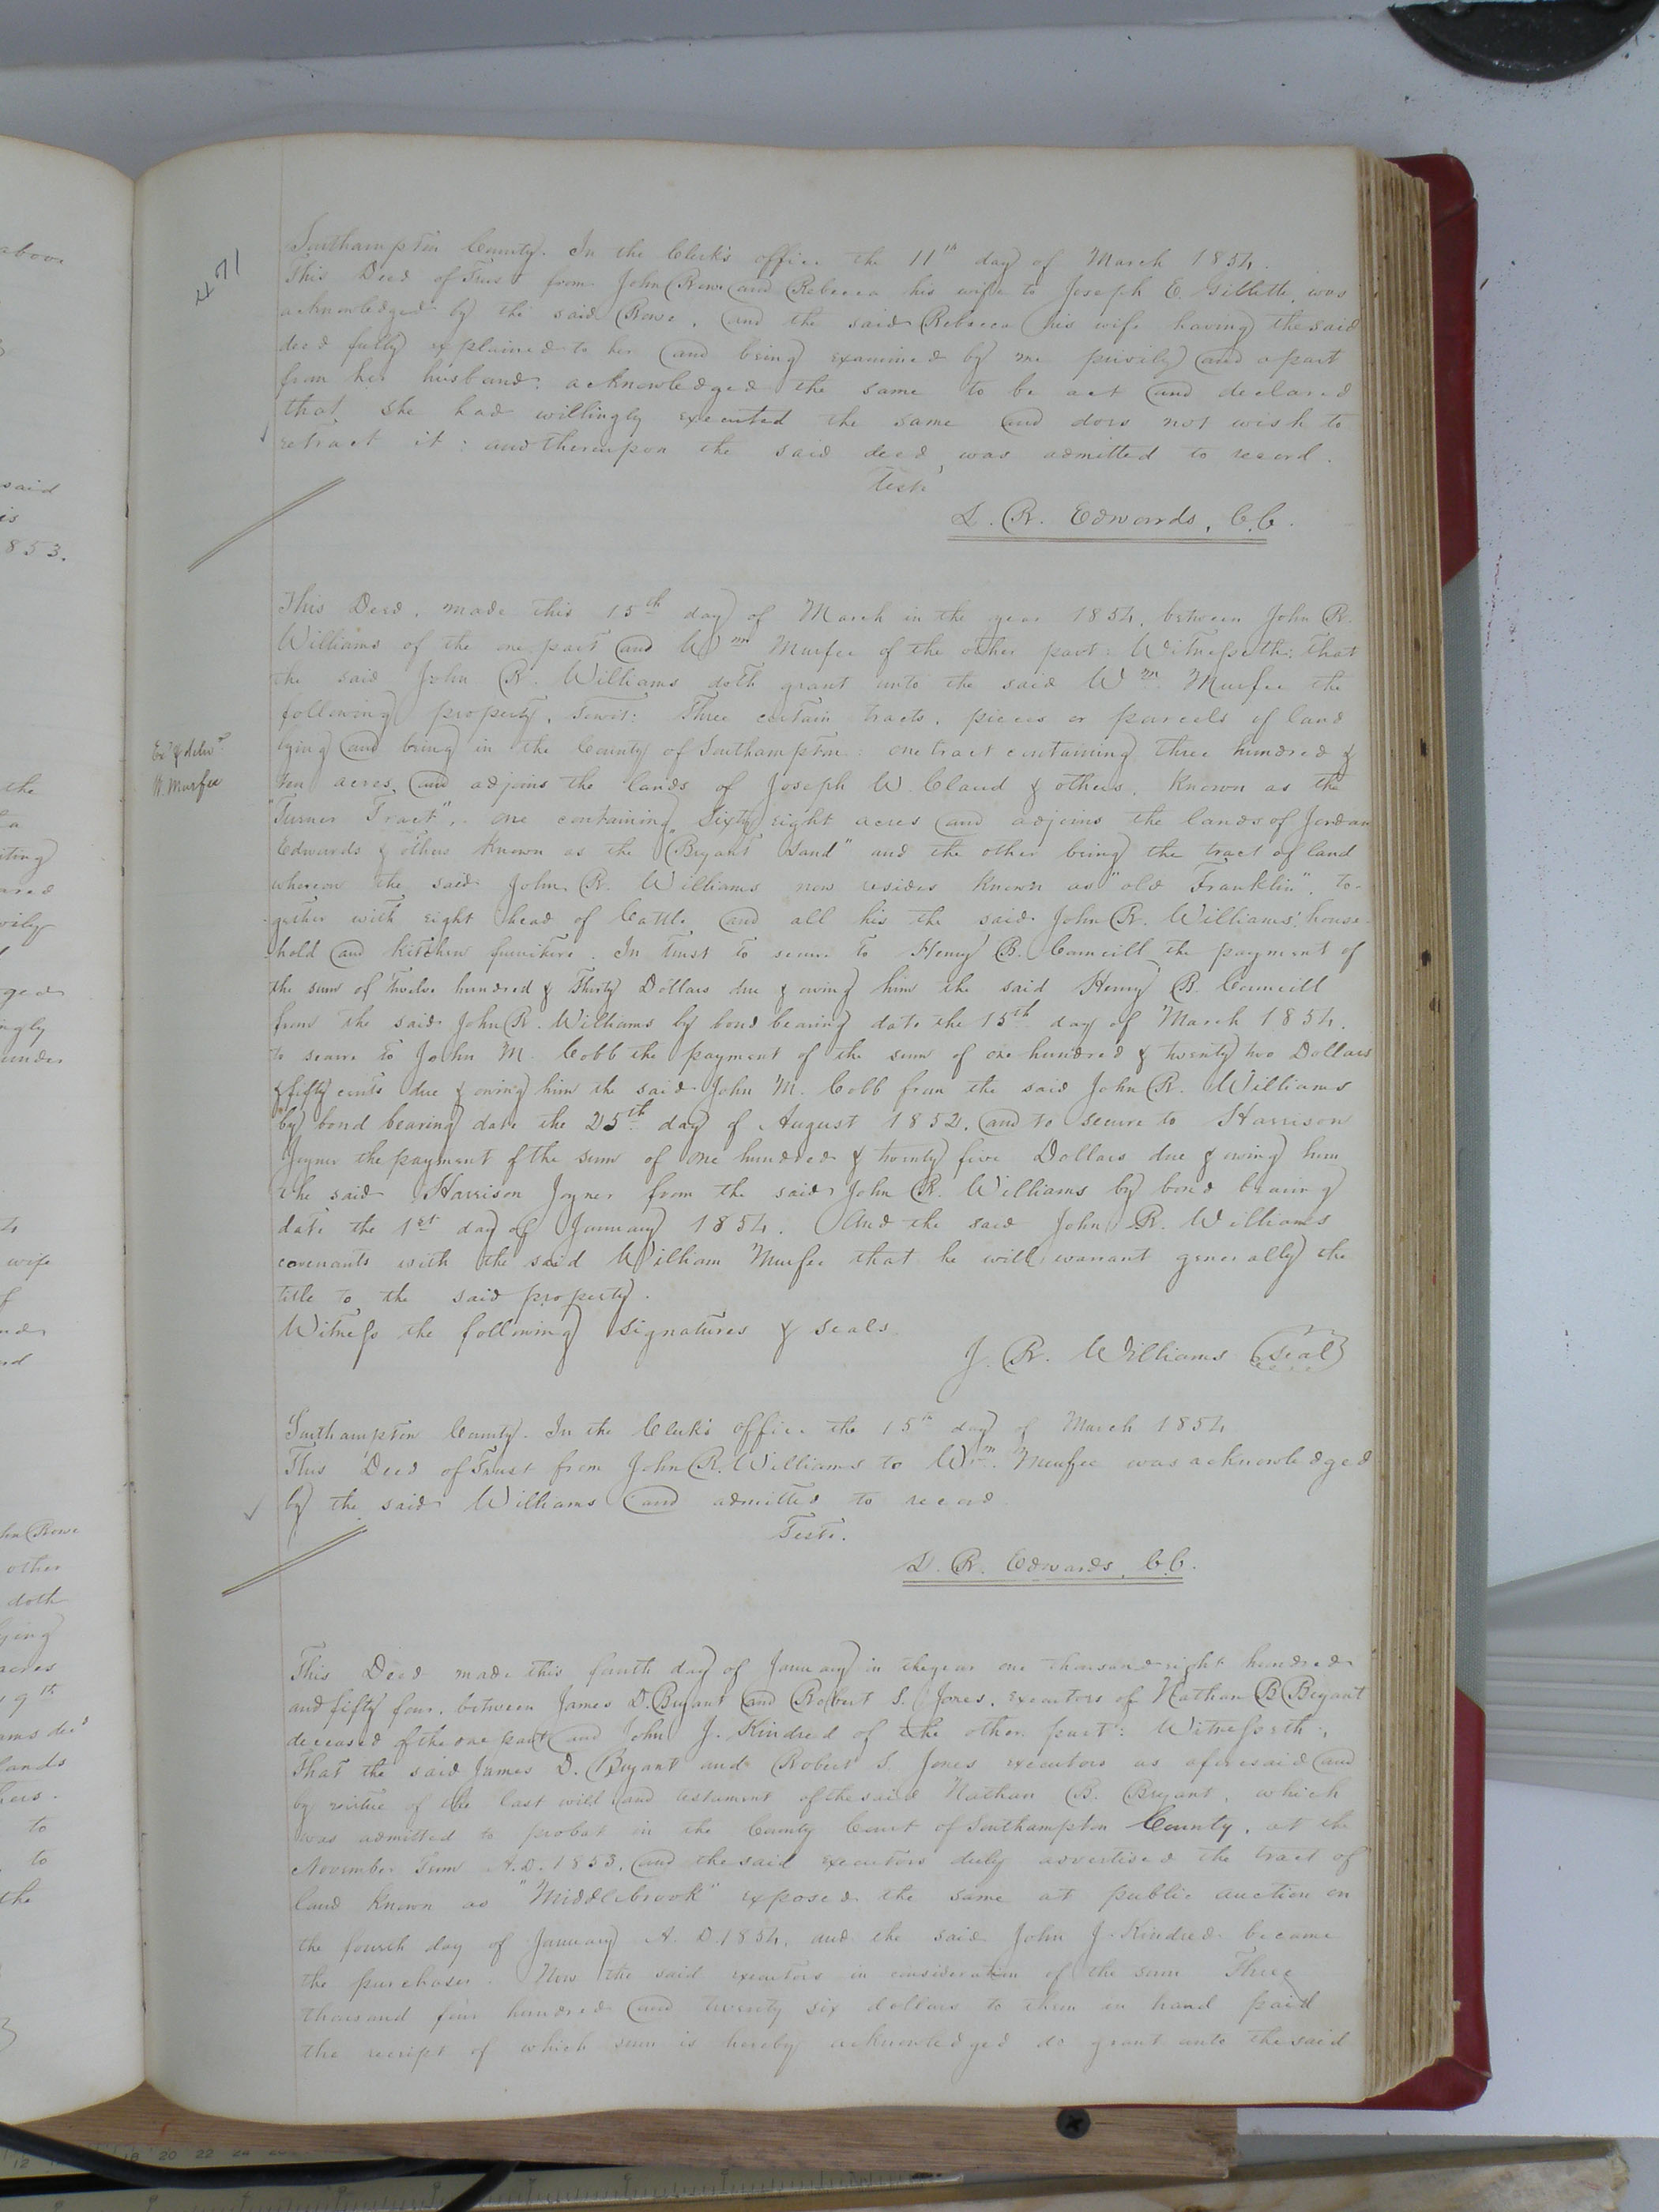 above
said
is
1853.
the
wife
John Rowe
other
doth
lying
acres
19th
lands
to
to
the
471
Southampton County. In the Clerk's office the 11th day of March 1854.
This Deed of Trust from John Rowe and Rebecca his wife to Joseph E. Gillette, was
acknowledged by the said Rowe, and the said Rebecca his wife having the said
deed fully explained to her and being examined by me privily and apart
from her husband: acknowledged the same to be act and declared
that she had willingly executed the same and does not wish to
retract it: and thereupon the said deed, was admitted to record.
Teste
L. R. Edwards, C.C.
This Deed, made this 15th day of March in the year 1854, between John R.
Williams of the one part and Wm Murfee of the other part: Witnesseth: that
the said John R. Williams doth grant unto the said Wm. Murfee the
following property, towit: Three certain tracts, pieces or parcels of land
lying and being in the County of Southampton one tract containing three hundred &
Ex'd & deliv'd
W. Murfee
ten acres, and adjoins the lands of Joseph W. Claud & others, Known as the
"Turner Tract", one containing Sixty eight acres and adjoins the lands of Jordan
Edwards & others Known as the "Bryant Land" and the other being the tract of land
whereon the said John R. Williams now resides Known as "old Franklin", to-
gether with eight head of Cattle and all his the said John R. Williams' house-
hold and kitchen furniture. In trust to secure to Henry B. Councill the payment of
the sum of Twelve hundred & Thirty Dollars due & owing him the said Henry B. Councill
from the said John R. Williams by bond bearing date the 15th day of March 1854.
to secure to John M. Cobb the payment of the sum of one hundred & twenty two Dollars
& fifty cents due & owing him the said John M. Cobb from the said John R. Williams
by bond bearing date the 25th day of August 1852, and to secure to Harrison
Joyner the payment of the sum of one hundred & twenty five Dollars due & owing him
the said Harrison Joyner from the said John R. Williams by bond bearing
date the 1st day of January 1854. And the said John R. Williams
covenants with the said William Murfee that he will warrant generally the
title to the said property.
Witness the following signatures & seals
J. R. Williams (seal)
Southampton County. In the Clerk's Office the 15th day of March 1854
This Deed of Trust from John R. Williams to Wm. Murfee was acknowledged
by the said Williams and admitted to record
Teste.
L. R. Edwards, C.C.
This Deed made this fourth day of January in the year one thousand eight hundred
and fifty four, between James D. Bryant and Robert S. Jones, executors of Nathan B Bryant
deceased of the one part and John J. Kindred of the other part: Witnesseth,
That the said James D. Bryant and Robert S. Jones executors as aforesaid and
by virtue of the last will and testament of the said Nathan B. Bryant, which
was admitted to probat in the County Court of Southampton County, at the
November Term A.D. 1853, and the said executors duly advertised the tract of
land known as "Middlebrook" exposed the same at public auction on
the fourth day of January A. D. 1854, and the said John J. Kindred became
the purchaser. Now the said executors in consideration of the sum Three
thousand four hundred and twenty six dollars to them in hand paid
the receipt of which sum is hereby acknowledged do grant unto the said